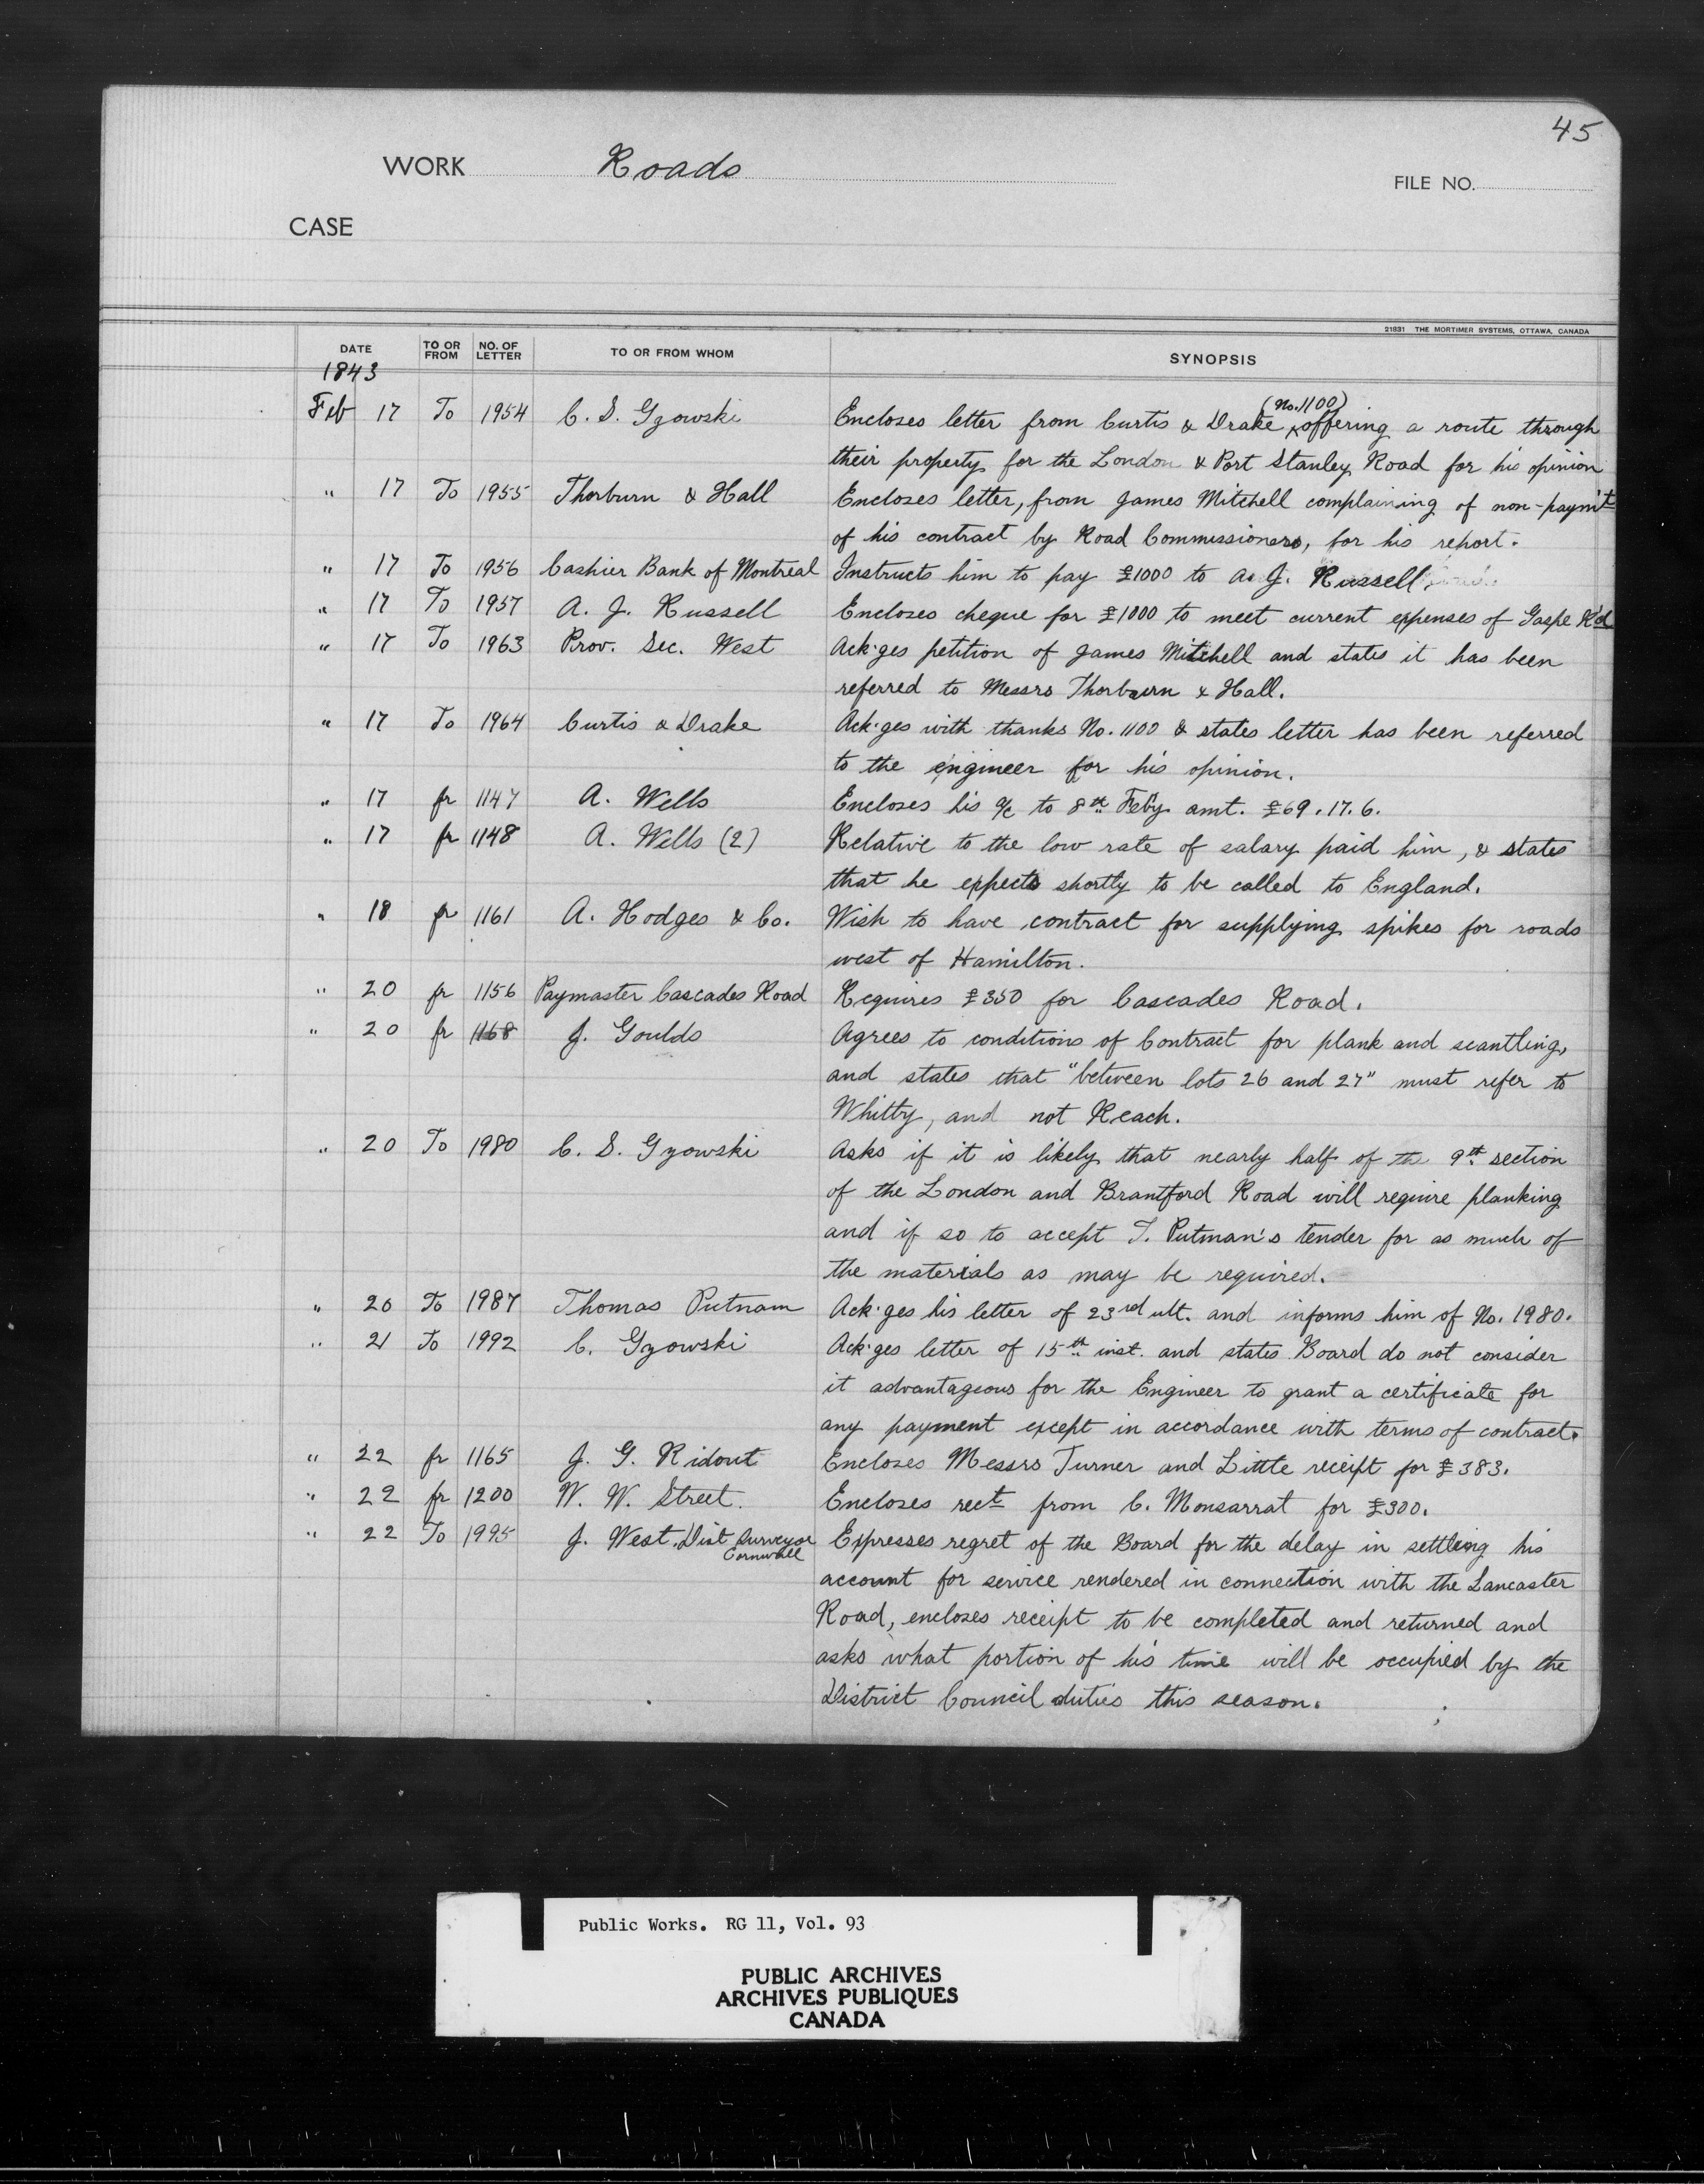 45
WORK Roads
FILE NO.
CASE
21831 THE MORTIMER SYSTEMS, OTTAWA, CANADA
DATE TO OR FROM NO. OF LETTER TO OR FROM WHOM SYNOPSIS
1843
(No. 1100)
Feb 17 To 1954 C. S. Gzowski Encloses letter from Curtis & Drake ^ offering a route through
their property for the London & Port Stanley Road for his opinion
" 17 To 1955 Thorburn & Hall Encloses letter, from James Mitchell complaining of non-paym't
of his contract by Road Commissioners, for his report.
" 17 To 1956 Cashier Bank of Montreal Instructs him to pay £1000 to A. J. Russell
" 17 To 1957 A. J. Russell Encloses cheque for £1000 to meet current expenses of Gaspe R'd
" 17 To 1963 Prov. Sec. West Ack·ges petition of James Mitchell and states it has been
referred to Messrs Thorburn & Hall.
" 17 To 1964 Curtis & Drake Ack·ges with thanks No. 1100 & states letter has been referred
to the engineer for his opinion.
" 17 fr 1147 A. Wells Encloses his a/c to 8th Feb'y amt. £69.17.6.
" 17 fr 1148 A. Wells (2) Relative to the low rate of salary paid him, & states
that he expects shortly to be called to England.
" 18 fr 1161 A. Hodges & Co. Wish to have contract for supplying spikes for roads
west of Hamilton.
" 20 fr 1156 Paymaster Cascades Road Requires £350 for Cascades Road.
" 20 fr 1168 J. Goulds Agrees to conditions of Contract for plank and scantling,
and states that "between lots 26 and 27" must refer to
Whitty, and not Reach.
" 20 To 1980 C. S. Gzowski Asks if it is likely that nearly half of the 9th section
of the London and Brantford Road will require planking
and if so to accept T. Putman's tender for as much of
the materials as may be required.
" 20 To 1987 Thomas Putnam Ack·ges his letter of 23rd ult. and informs him of No. 1980.
" 21 To 1992 C. Gzowski Ack·ges letter of 15th inst. and states Board do not consider
it advantageous for the Engineer to grant a certificate for
any payment except in accordance with terms of contract.
" 22 fr 1165 J. G. Ridout Encloses Messrs Turner and Little receipt for £383.
" 22 fr 1200 W. W. Street. Encloses rect from C. Monsarrat for £300.
" 22 To 1995 J. West, Dist Surveyor Expresses regret of the Board for the delay in settling his
Cornwall
account for service rendered in connection with the Lancaster
Road, encloses receipt to be completed and returned and
asks what portion of his time will be occupied by the
District Council duties this season.
Public Works. RG 11, Vol. 93
PUBLIC ARCHIVES
ARCHIVES PUBLIQUES
CANADA